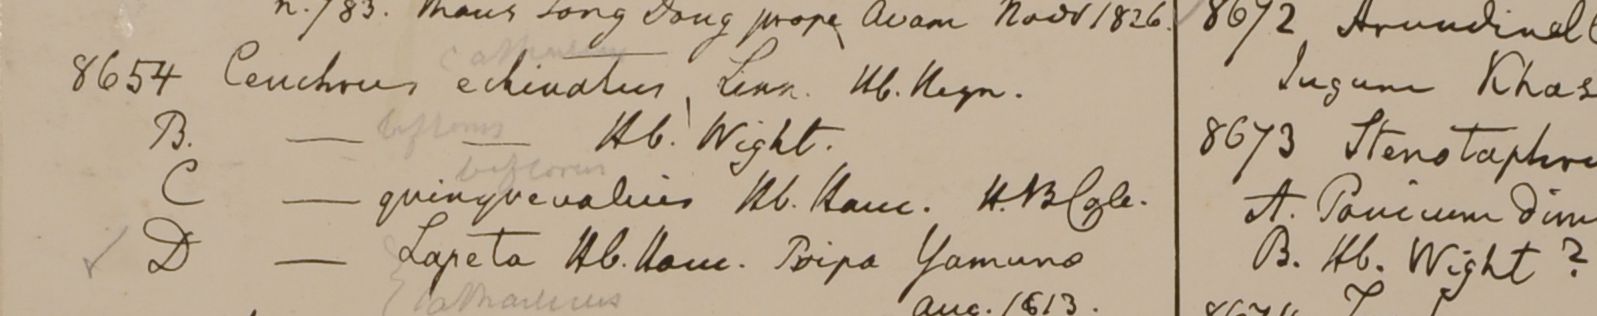 n. 783. Maus Tong Dong prope Avam Novr 1826.
8654 Cenchrus echinatus Linn. Hb. Heyn.
B. — biflorus — Hb. Wight.
biflorus
C — quinquevalvis Hb. Ham. H.B.Cale.
D — Lapeta Hb. Ham. Ripa Yamuna
catharticus Aug. 1813.
8672 Arundinell
Jugum Khas
8673 Stenotaphru
A. Panicum dim
B. Hb. Wight ?